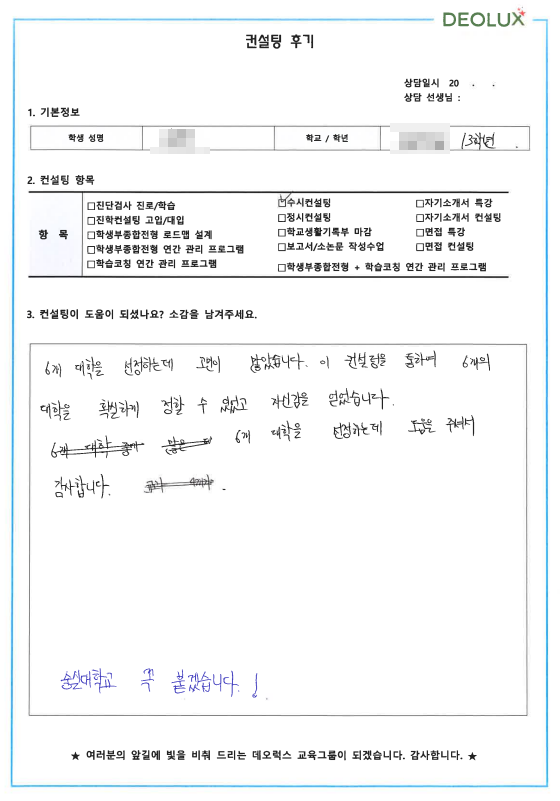 DEOLUX
컨설팅 후기
상담일시 20 . .
상담 선생님 :
1. 기본정보
학생 성명 학교 / 학년 / 3학년 .
2. 컨설팅 항목
항 목
□진단검사 진로/학습 ☑수시컨설팅 □자기소개서 특강
□진학컨설팅 고입/대입 □정시컨설팅 □자기소개서 컨설팅
□학생부종합전형 로드맵 설계 □학교생활기록부 마감 □면접 특강
□학생부종합전형 연간 관리 프로그램 □보고서/소논문 작성수업 □면접 컨설팅
□학습코칭 연간 관리 프로그램 □학생부종합전형 + 학습코칭 연간 관리 프로그램
3. 컨설팅이 도움이 되셨나요? 소감을 남겨주세요.
6개 대학을 선정하는데 고민이 많았습니다. 이 컨설팅을 통하여 6개의
대학을 확실하게 정할 수 있었고 자신감을 얻었습니다.
6개 대학 중에 많은 6개 대학을 선정하는데 도움을 주셔서
감사합니다. .
숭실대학교 꼭 붙겠습니다. !
★ 여러분의 앞길에 빛을 비춰 드리는 데오럭스 교육그룹이 되겠습니다. 감사합니다. ★